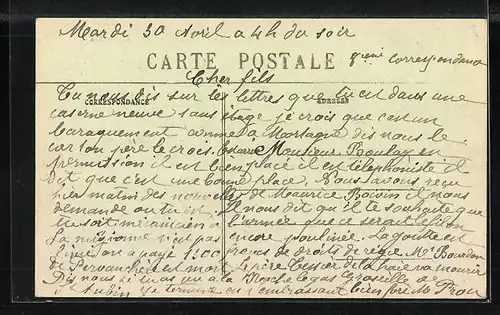 Mardi 30 Avril a 4h du soir
CARTE POSTALE
8eme correspondance
Cher fils
CORRESPONDANCE
ADRESSE
Tu nous dis sur tes lettres que tu est dans une
caserne neuve sans étage je crois que c'est un
baraquement comme a Mortagne dis nous le
car ton père le crois. Monsieur Boulay en
permission il est bien placé il est téléphoniste il
dit que c'est une bonne place. Nous avons reçu
hier matin des nouvelles de Maurice Boivin il nous
demande ou tu est. Il nous dit qu'il te souhaite que
tu soit mécanicien a l'armée que ce serait bien bon
La mignonne n'est pas encore poulinée. La goutte est
a payé 1300 francs de droits de régie Mr Bourdon
de Pervenchères est mort le père de la haie va mourir
Dis nous si tu as vu la Roche le gas de
St Aubin je termine en t'embrassant bien fort M. Prou